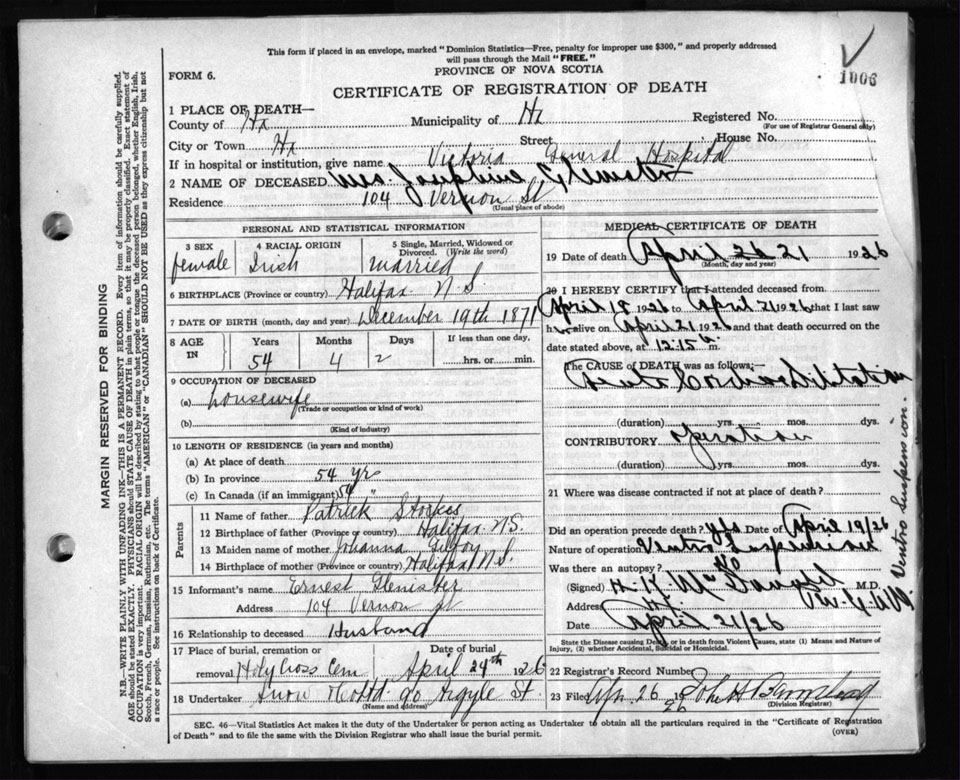 This form if placed in an envelope, marked "Dominion Statistics—Free, penalty for improper use $300," and properly addressed
will pass through the Mail "FREE."
PROVINCE OF NOVA SCOTIA
1006
FORM 6.
CERTIFICATE OF REGISTRATION OF DEATH
1 PLACE OF DEATH—
County of Hx Municipality of Hx Registered No.
(For use of Registrar General only)
City or Town Hx Street House No.
If in hospital or institution, give name Victoria General Hospital
2 NAME OF DECEASED Mrs. Josephine Glenister
Residence 104 Vernon St
(Usual place of abode)
PERSONAL AND STATISTICAL INFORMATION
3 SEX 4 RACIAL ORIGIN 5 Single, Married, Widowed or Divorced. (Write the word)
female Irish married
6 BIRTHPLACE (Province or country) Halifax N.S.
7 DATE OF BIRTH (month, day and year) December 19th 1871
8 AGE IN Years Months Days If less than one day,
54 4 2 hrs. or min.
9 OCCUPATION OF DECEASED
(a) housewife
(Trade or occupation or kind of work)
(b)
(Kind of industry)
10 LENGTH OF RESIDENCE (in years and months)
(a) At place of death
(b) In province 54 yrs
(c) In Canada (if an immigrant) 54 "
Parents
11 Name of father Patrick Stokes
12 Birthplace of father (Province or country) Halifax N.S.
13 Maiden name of mother Johanna
14 Birthplace of mother (Province or country) Halifax N.S.
15 Informant's name Ernest Glenister
Address 104 Vernon st
16 Relationship to deceased Husband
17 Place of burial, cremation or Date of burial
removal Holy Cross Cem April 24th 1926
18 Undertaker Snow 90 Argyle St.
(Name and address)
MEDICAL CERTIFICATE OF DEATH
19 Date of death April 21 1926
(Month, day and year)
20 I HEREBY CERTIFY that I attended deceased from
April 18 1926 to April 21 1926 that I last saw
her alive on April 21 1926 and that death occurred on the
date stated above, at 12:15 a m.
The CAUSE OF DEATH was as follows:—
Dilatation
(duration) yrs. mos. dys.
CONTRIBUTORY operation
(duration) yrs. mos. dys.
21 Where was disease contracted if not at place of death?
Did an operation precede death? yes Date of April 19/26
Nature of operation Ventro Suspension
Was there an autopsy? No
(Signed) H. K. McDonald M.D.
Address
Date April 21/26
State the Disease causing Death, or in death from Violent Causes, state (1) Means and Nature of
Injury, (2) whether Accidental, Suicidal or Homicidal.
22 Registrar's Record Number
23 Filed Apr. 26 1926 John H Barnstead
(Division Registrar)
Ventro Suspension.
SEC. 46—Vital Statistics Act makes it the duty of the Undertaker or person acting as Undertaker to obtain all the particulars required in the "Certificate of Registration
of Death" and to file the same with the Division Registrar who shall issue the burial permit.
(OVER)
MARGIN RESERVED FOR BINDING
N.B.—WRITE PLAINLY WITH UNFADING INK—THIS IS A PERMANENT RECORD. Every item of information should be carefully supplied.
AGE should be stated EXACTLY. PHYSICIANS should STATE CAUSE OF DEATH in plain terms, so that it may be properly classified. Exact statement of
OCCUPATION is very important. RACIAL ORIGIN will be described by stating to what people or tongue the deceased person belonged, whether English, Irish,
Scotch, French, German, Russian, Ruthenian, etc. The terms "AMERICAN" or "CANADIAN" SHOULD NOT BE USED as they express citizenship but not
a race or people. See instructions on back of Certificate.